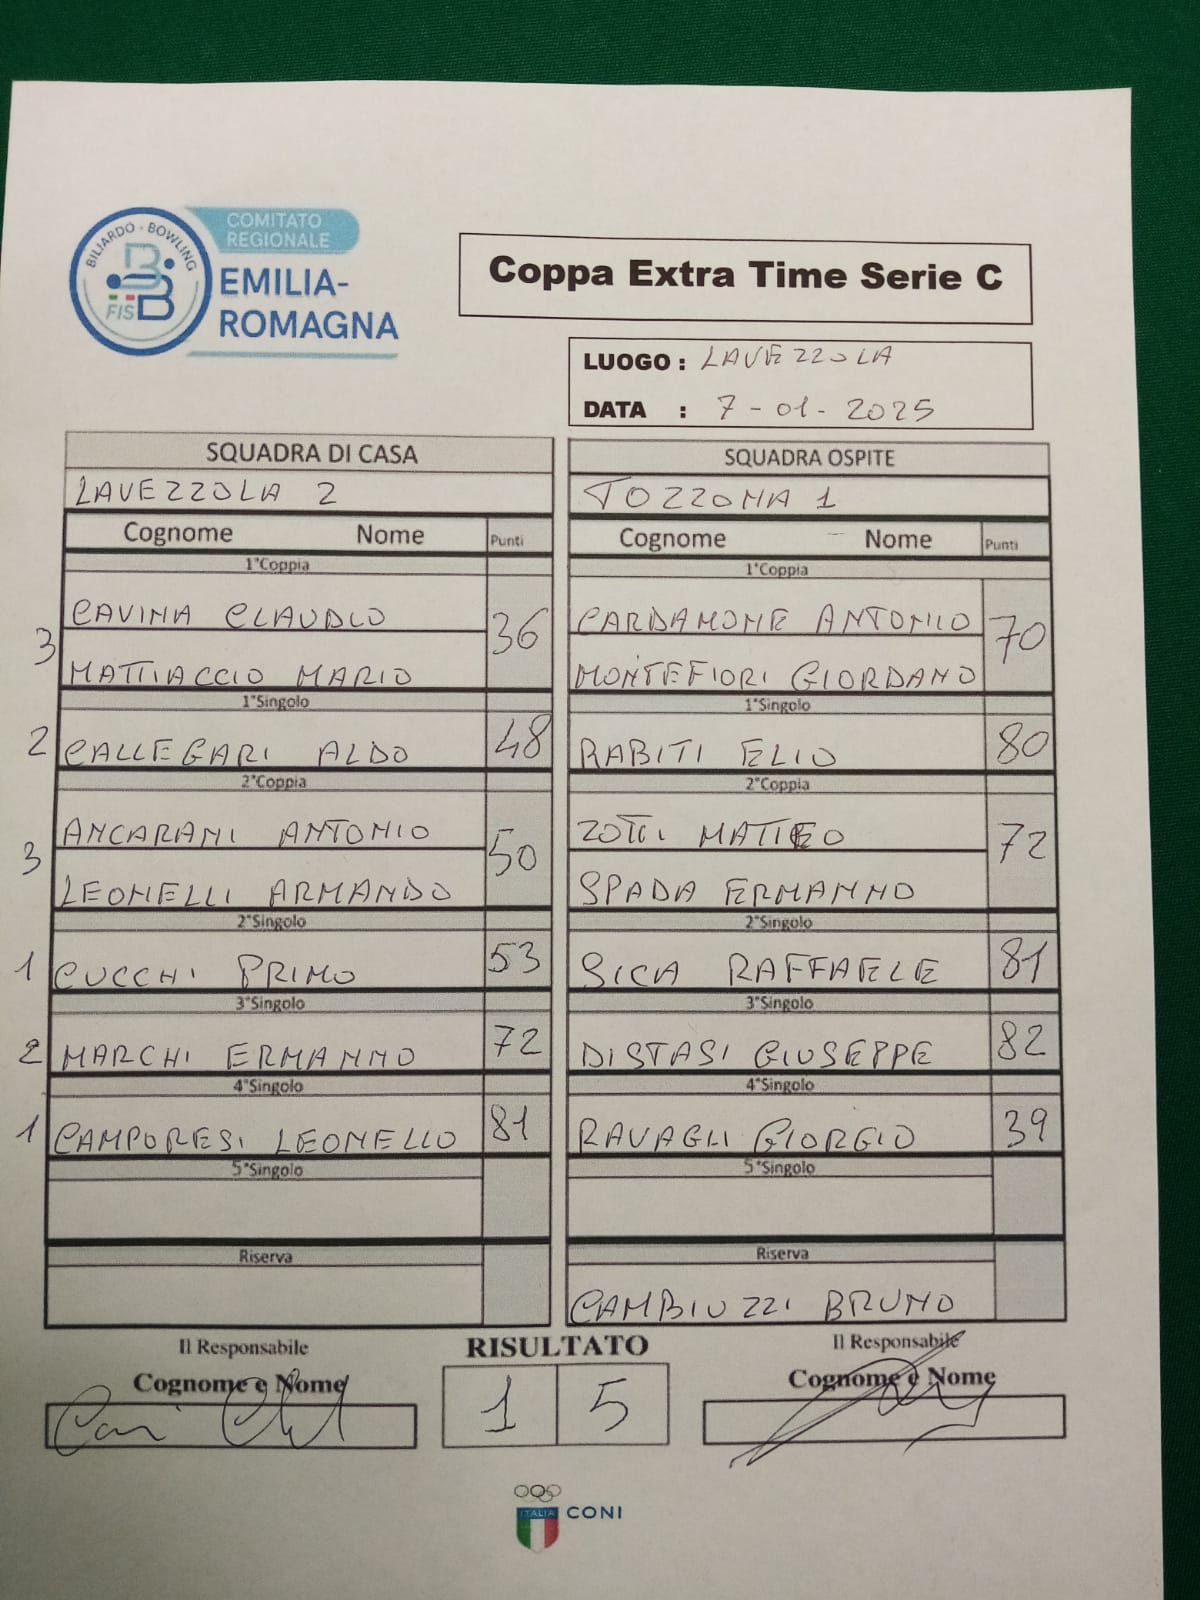 BILIARDO - BOWLING
FISBB
COMITATO
REGIONALE
EMILIA-
ROMAGNA
Coppa Extra Time Serie C
LUOGO : LAVEZZOLA
DATA : 7-01-2025
SQUADRA DI CASA
LAVEZZOLA 2
Cognome Nome Punti
1°Coppia
3 CAVINA CLAUDIO 36
MATTIACCIO MARIO
1°Singolo
2 CALLEGARI ALDO 48
2°Coppia
3 ANCARANI ANTONIO 50
LEONELLI ARMANDO
2°Singolo
1 CUCCHI PRIMO 53
3°Singolo
2 MARCHI ERMANNO 72
4°Singolo
1 CAMPORESI LEONELLO 81
5°Singolo
Riserva
SQUADRA OSPITE
TOZZONA 1
Cognome Nome Punti
1°Coppia
CARDAMONE ANTONIO 70
MONTEFIORI GIORDANO
1°Singolo
RABITI ELIO 80
2°Coppia
ZOTTI MATTEO 72
SPADA ERMANNO
2°Singolo
SICA RAFFAELE 81
3°Singolo
DISTASI GIUSEPPE 82
4°Singolo
RAVAGLI GIORGIO 39
5°Singolo
Riserva
CAMBIUZZI BRUNO
Il Responsabile
Cognome e Nome
RISULTATO
1 5
Il Responsabile
Cognome e Nome
ITALIA
CONI